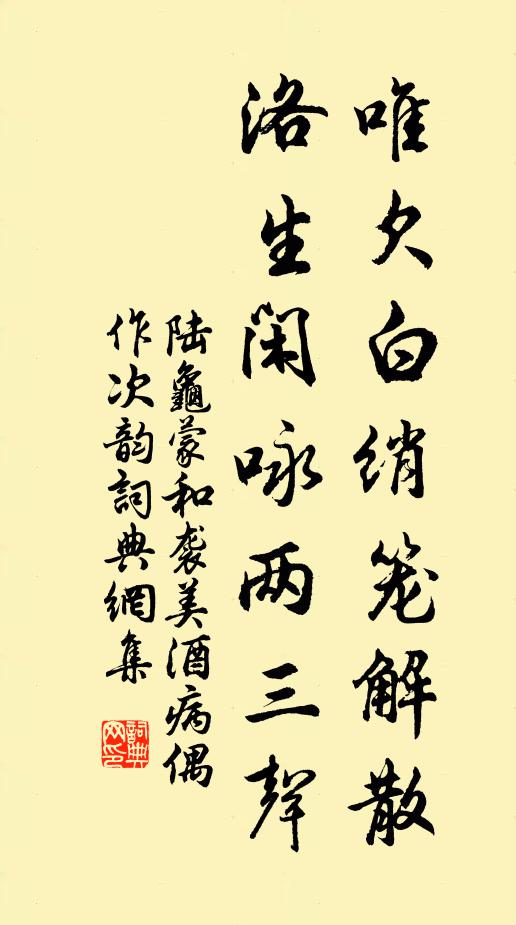 唯欠白绡笼解散
洛生闲咏两三聲
陆龜蒙和袭美酒病偶
作次韵詞典網集
詞典
网印